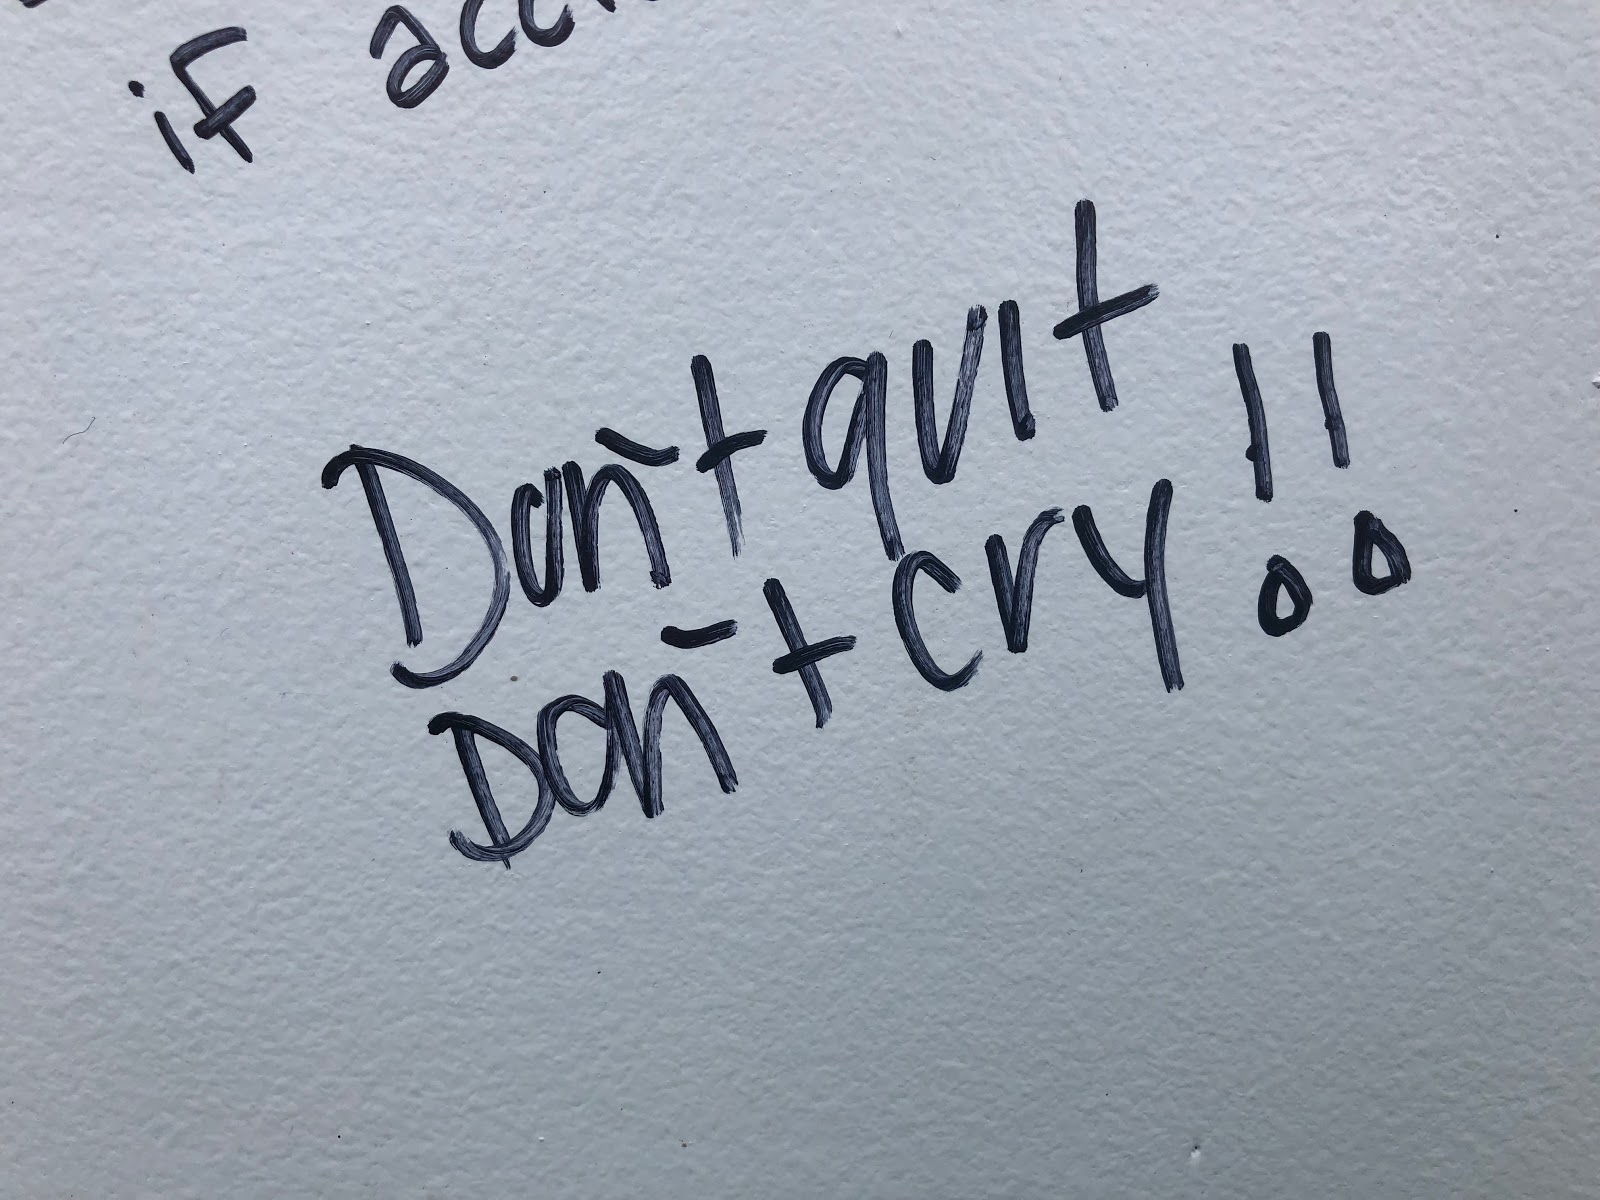 if
Don't quit
Don't cry!!